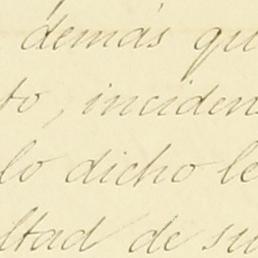 demás qu
to, inciden
lo dicho le
ltad de su